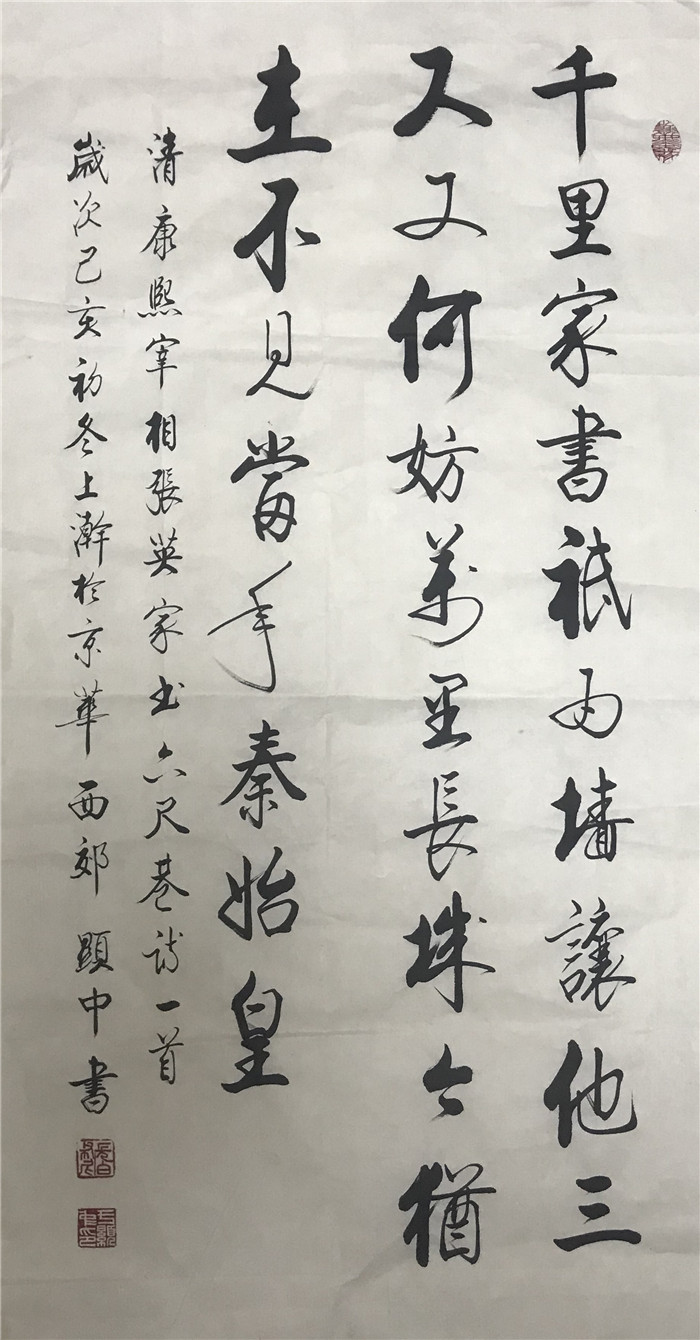 千里家書祇為墻讓他三
尺又何妨萬里長城今猶
在不見當年秦始皇
清康熙宰相張英家书六尺巷诗一首
歲次己亥初冬上澣於京華西郊顯中書